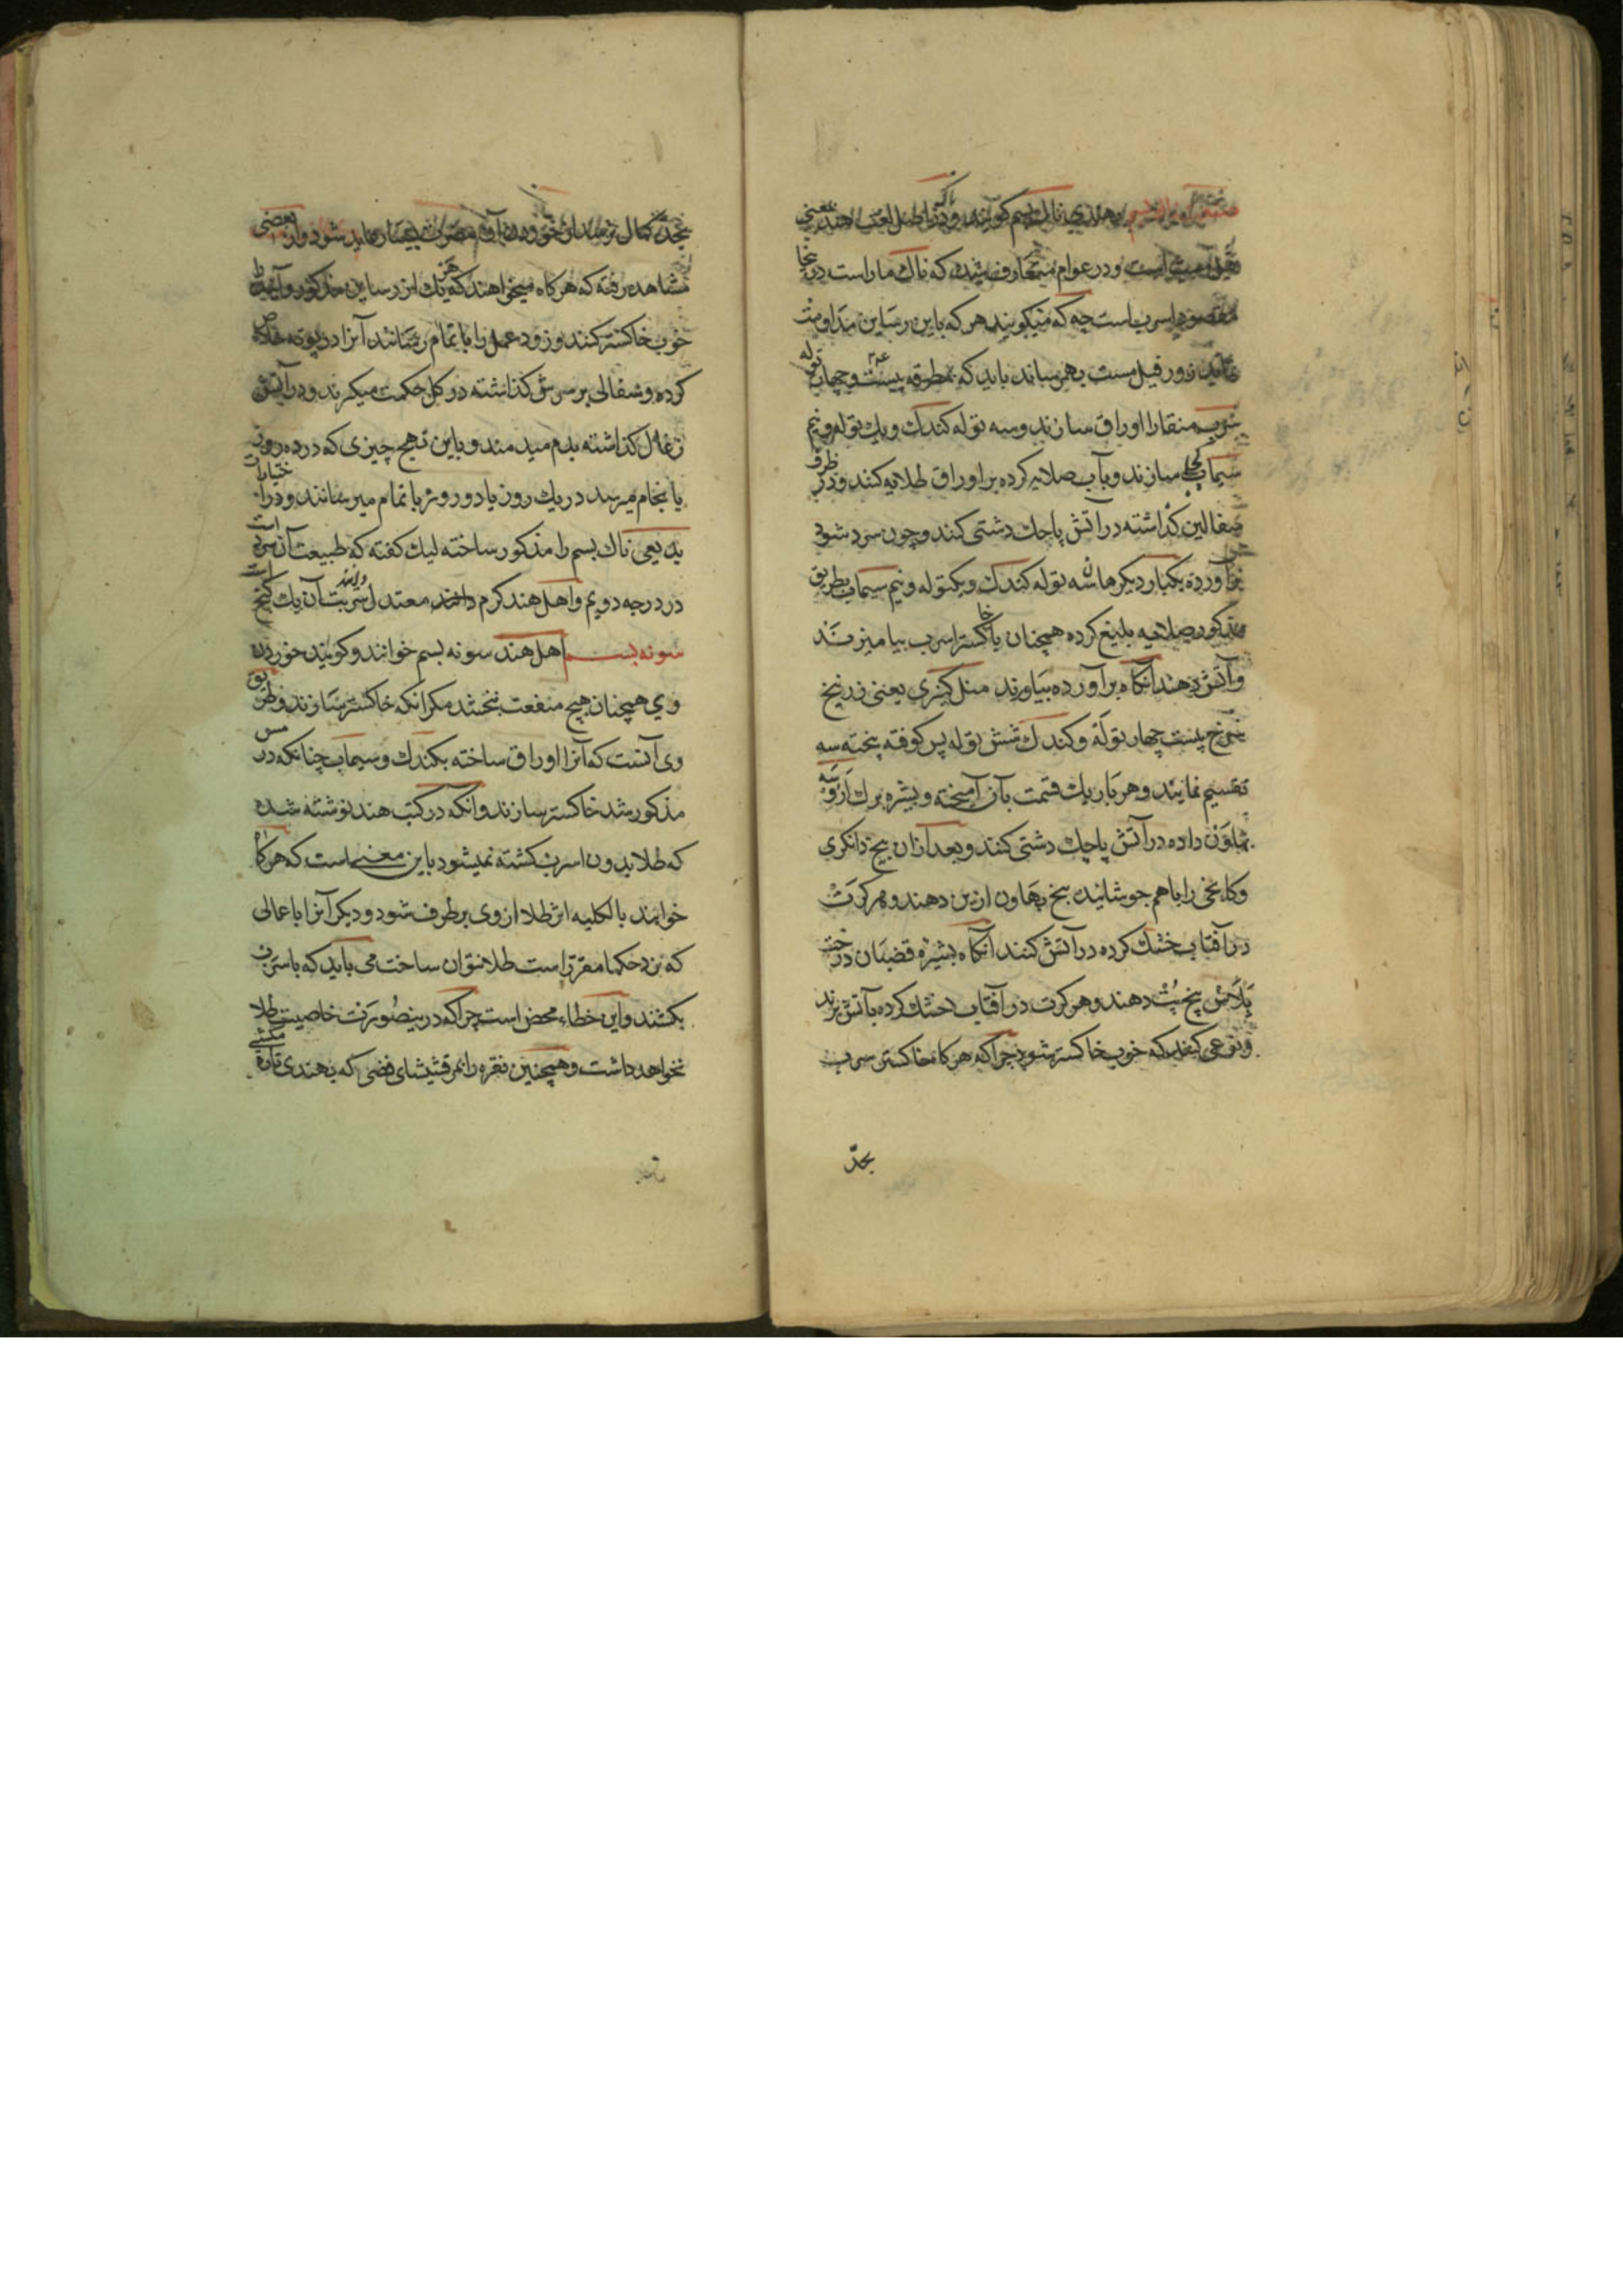 بهندی ناک بسم کویند و در اصل لغت اهل هند بمعنی
فیل مست است و در عوام متعارف شده که ناک مار است در ینجا
مقصود اسرب است چه که میکویند هر که باین رساین مداومت
نماید زور فیل مست بهمرساند باید که بمطرقه بیست و چهار توله
سرب منقا را اوراق سازند و سه توله کندک و یک توله و نیم
سیماب کجلی سازند و بآب صلایه کرده بر اوراق طلایه کنند و در ظرف
سفالین کذاشته در آتش پاچک دشتی کنند و چون سرد شود
برآورده یکبار دیکر همان سه توله کندک و یکتوله و نیم سیماب بطریق
مذکور صلایه بلیغ کرده همچنان با خاکستر اسرب بیامیزند
و آتش دهند آنکاه برآورده بیاورند منسل کیری یعنی زرنیخ
سرخ بیست چهار توله و کندک شش توله پس کوفته پخته سه
تقسیم نمایند و هر بار یک قسمت بآن آمیخته و بشیره برک اروسه
بهاون داده در آتش پاچک دشتی کنند و بعد ازان بیخ دانکری
و کابخی را با هم جوشانیده پنج بهاون ازین دهند و هر کرت
در آفتاب خشک کرده در آتش کنند آنکاه بشیره قضبان درخت
پلاس پنج پت دهند و هر کرت در آفتاب خشک کرده بآتش برند
و نوعی کنند که خوب خاکستر شود چرا که هر کاه خاکستر سرب
بحد
بحد کمال نرسد از خوردن آن مضرت بسیار عاید شود و از بعضی
مشاهده رفته که هر کاه میخواهند که هر یک از رساین مذکور و آینده را
خوب خاکستر کنند و زود عمل را باتمام رسانند آنرا در بوته خلاص
کرده و سفالی بر سرش کذاشته در کل حکمت میکیرند و در آتش
زغال کذاشته بدم میدمند و باین نهج چیزی که در ده روز
بانجام میرسد در یک روز یا دو روز باتمام میرسانند و در اختیارات
بدیعی ناک بسم را مذکور ساخته لیک کفته که طبیعت آن سرد است
در درجه دویم و اهل هند کرم دانند معتدل شربت آن یک کنج است
سونه بسم اهل هند سونه بسم خوانند و کویند خوردن
وی همچنان هیچ منفعت نبخشد مکر آنکه خاکستر سازند و طریق
وی آنست که آنرا اوراق ساخته بکندک و سیماب چنانکه در مس
مذکور شد خاکستر سازند و آنکه در کتب هند نوشته شده
که طلا بدون اسرب کشته نمیشود باین معنی است که هر کاه
خواهند بالکلیه اثر طلا از وی برطرف شود و دیکر آنرا باعمالی
که نزد حکما مقرر است طلا نتوان ساخت می باید که باسرب
بکشند و این خطاء محض است چرا که درینصورت خاصیت طلا
نخواهد داشت و همچنین نقره را بمرقشیشای فضی که بهندی تاره مکشی